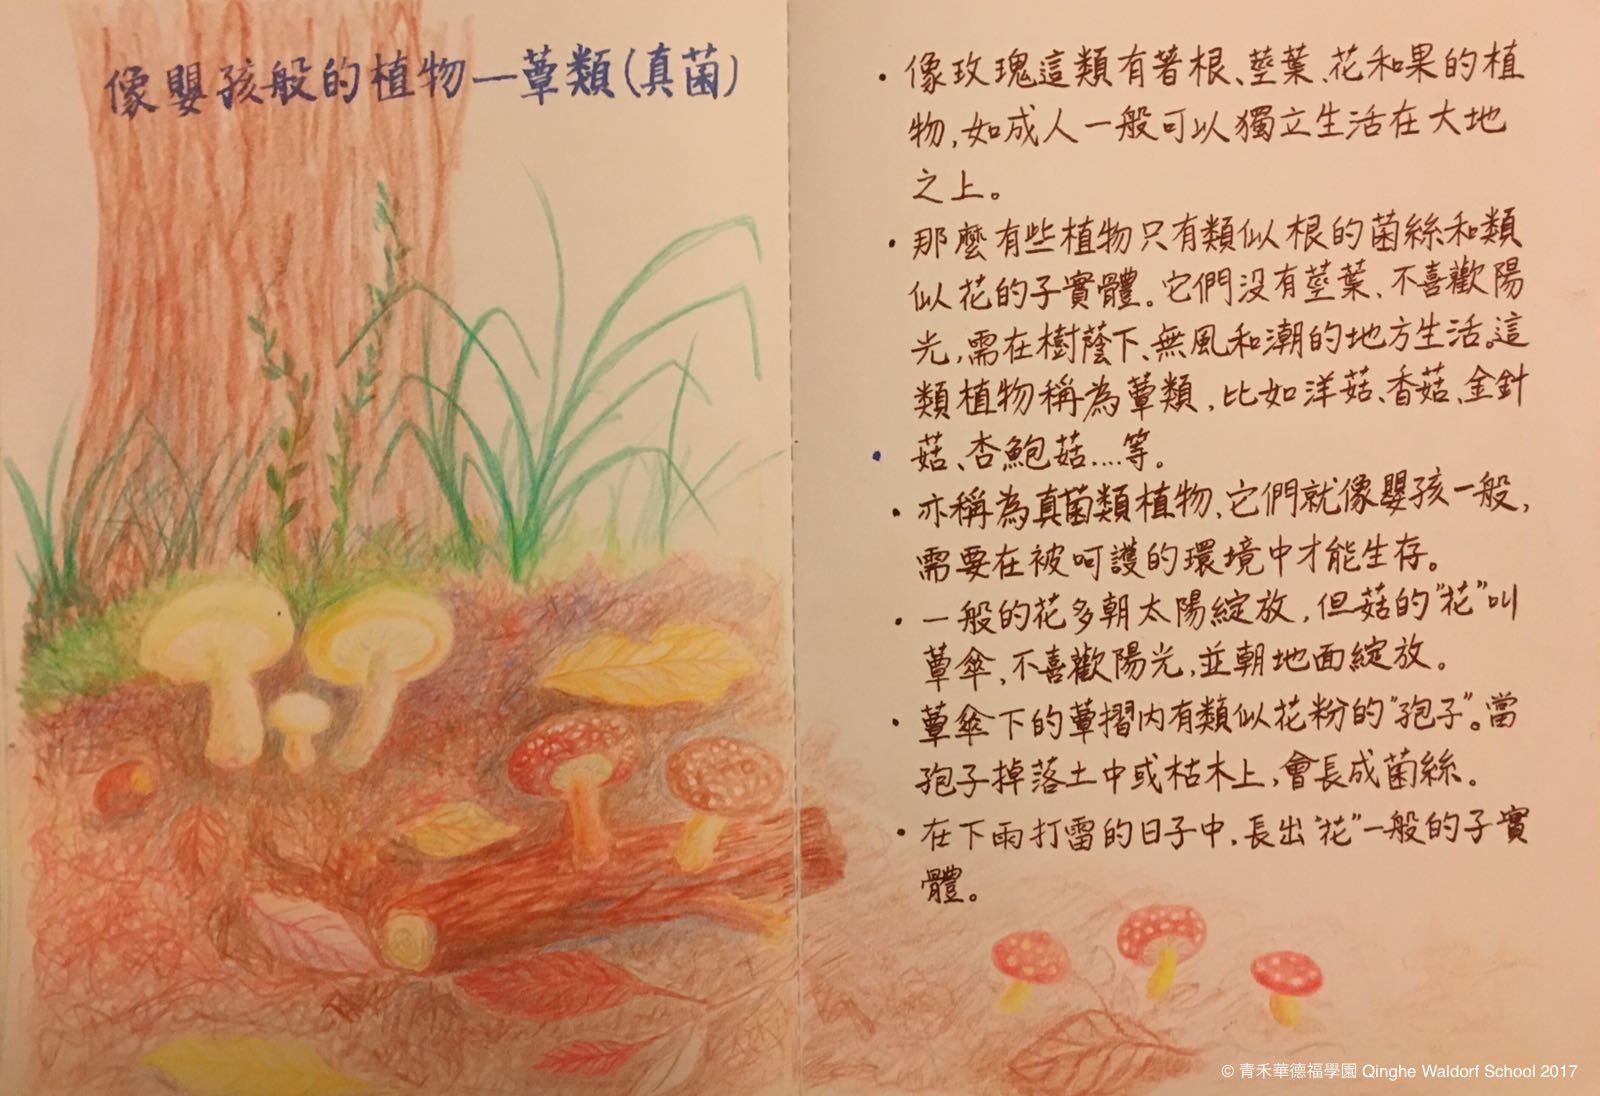 像嬰孩般的植物—蕈類(真菌)
• 像玫瑰這類有著根、莖葉、花和果的植
物,如成人一般可以獨立生活在大地
之上。
• 那麼有些植物只有類似根的菌絲和類
似花的子實體。它們沒有莖葉、不喜歡陽
光,需在樹蔭下、無風和潮的地方生活。這
類植物稱為蕈類,比如洋菇、香菇、金針
菇、杏鮑菇....等。
• 亦稱為真菌類植物、它們就像嬰孩一般,
需要在被呵護的環境中才能生存。
• 一般的花多朝太陽綻放,但菇的"花"叫
蕈傘,不喜歡陽光,並朝地面綻放。
• 蕈傘下的蕈摺內有類似花粉的"孢子"。當
孢子掉落土中或枯木上,會長成菌絲。
• 在下雨打雷的日子中,長出"花"一般的子實
體。
© 青禾華德福學園 Qinghe Waldorf School 2017